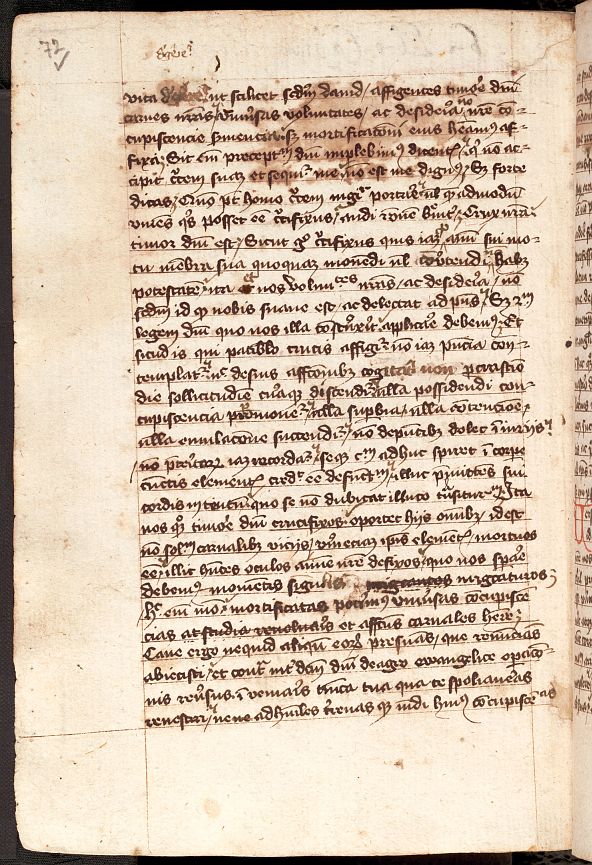 72
vita ut scilicet scdm dauid affigentes timore dni
carnes nras vniusas voluntates ac desideria no nre co
cupiscencie suiencia sz mortificatoni eius heamus af
fixa Sic em preceptm dni implebimus dicentis qi no ac
cipit crucem sua et sequir me no est me dignus Sz forte
dicas Quo pt homo crucem iugir portare ul quemadmodu
viuens qs posset ee crucifixus audi roue breuit Crux nra
timor dni est Sicut go crucifixus quis iam pro aimi sui mo
tu mebra sua quoquam mouendi ul couertendi habz
potestate ita et nos volutates nras ac desideria no
scdm id quod nobis suaue est ac delectat ad pns Sz scdm
legem dni quo nos illa costrixit applicare debemus Et
sicud is qui patiblo crucis affigitur no iam pncia con
templatr nec de suis affcoibz cogitat non crastio
die sollicitudie curaque distendir nulla possidendi con
cupiscencia pmouetr nulla supbia nulla cotencioe
ulla emulacoe succendir no de pntibz dolet iniuriis
no pteritorum iam recordar seque cum adhuc spiret i corpe
cunctis elementis credit ee defunctum illuc pmittes sui
cordis intuitu quo se no dubitat illuco tnsiturum Ita
nos qz timore dni crucifixos oportet hiis omibz idest
no solm carnalibz viciis verumeciam ipis elemetis mortuos
ee illic hntes oculos aime nre defixos quo nos spare
debemus mometis singulis migraturos
hoc em mo mortificatas poterimus vniusas cocupisce
cias atque studia et affcus carnales here
Caue ergo nequid aliqn eorum presumas que renuncians
abiecisti et contra int dictum dni de agro euangelice opacio
nis reusus i veniaris tunica tua qua te spoliaueras
reuestiri neue ad humiles terrenasque mudi huius cocupiscecias